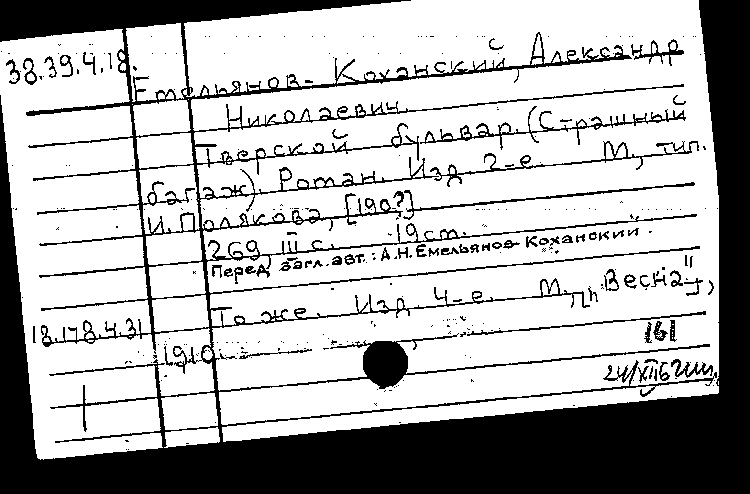 38.39.4.18.
Емельянов-Коханский, Александр
Николаевич.
Тверской бульвар. (Страшный
багаж). Роман. Изд. 2-е. М., тип.
И. Полякова, [190?]
269, III с. 19 см.
Перед загл. авт.: А.Н. Емельянов-Коханский.
18.178.4.31
То же. Изд. 4-е. М., "Весна",
1910.
161